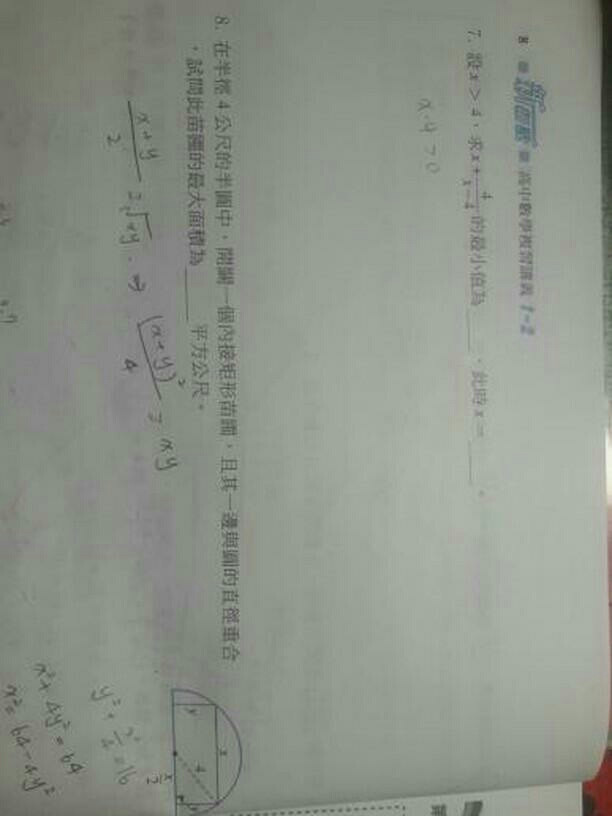 8 高中數學複習講義 1-2
7. 設 x > 4，求 x + 4/(x-4) 的最小值為____，此時 x = ____。
x-4 > 0
8. 在半徑 4 公尺的半圓中，開闢一個內接矩形苗圃，且其一邊與圓的直徑重合
，試問此苗圃的最大面積為____平方公尺。
(x+y)/2 ≥ √xy ⇒ (x+y)²/4 ≥ xy
x
y
4
y
x/2
y² + x²/4 = 16
x² + 4y² = 64
x² = 64 - 4y²